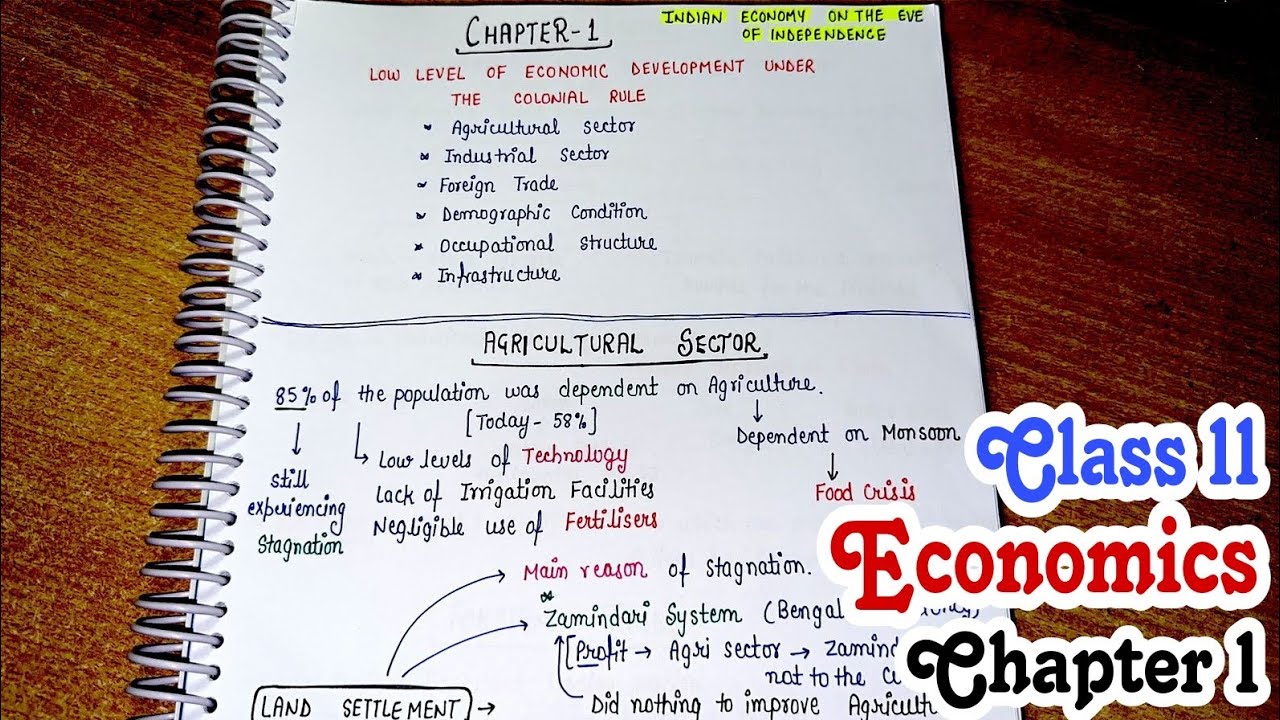 CHAPTER-1
INDIAN ECONOMY ON THE EVE
OF INDEPENDENCE
LOW LEVEL OF ECONOMIC DEVELOPMENT UNDER
THE COLONIAL RULE
Agricultural sector
Industrial Sector
Foreign Trade
Demographic Condition
Occupational structure
Infrastructure
AGRICULTURAL SECTOR
85% of the population was dependent on Agriculture.
[Today - 58%]
Dependent on Monsoon
Food Crisis
still
experiencing
stagnation
Low levels of Technology
Lack of Irrigation Facilities
Negligible use of Fertilisers
Main reason of stagnation.
Zamindari System (Bengal
[Profit → Agri sector →
not to the
Did nothing to improve
LAND SETTLEMENT →
Class 11
Economics
Chapter 1